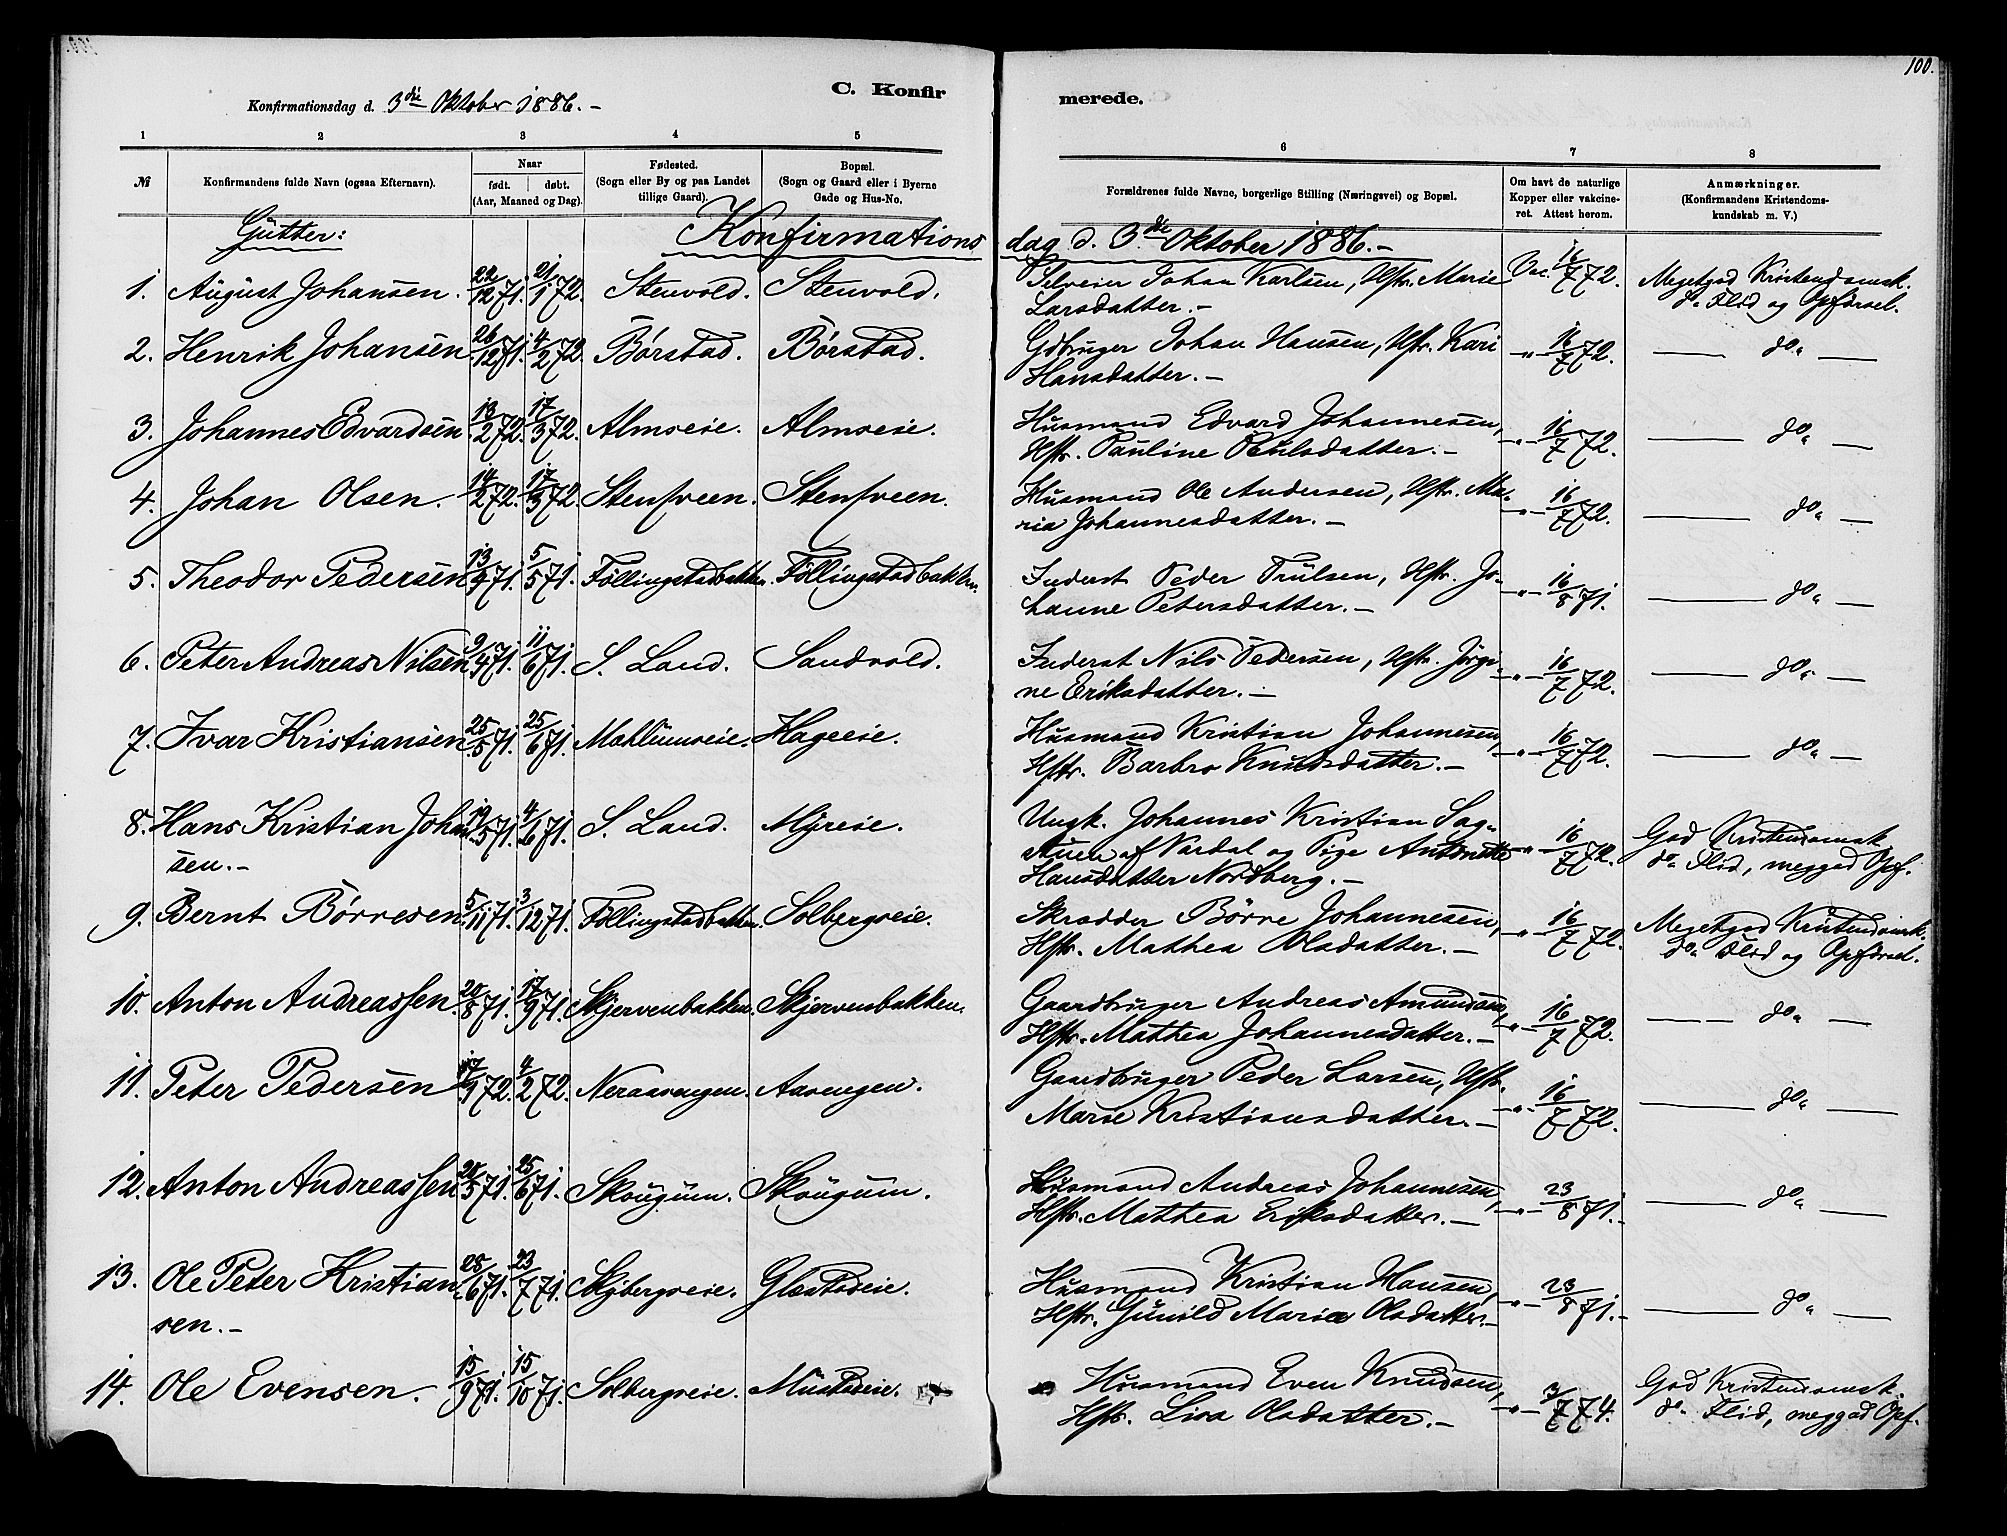 100.
C. Konfir merede.
Konfirmationsdag d. 3die Oktober 1886.-
1 2 3 4 5 6 7 8
№ Konfirmandens fulde Navn (ogsaa Efternavn). Naar født. døbt. (Aar, Maaned og Dag). Fødested. (Sogn eller By og paa Landet tillige Gaard). Bopæl. (Sogn og Gaard eller i Byerne Gade og Hus-No. Forældrenes fulde Navne, borgerlige Stilling (Næringsvei) og Bopæl. Om havt de naturlige Kopper eller vakcineret. Attest herom. Anmærkninger. (Konfirmandens Kristendomskundskab m. V.)
Gutter: Konfirmations dag d. 3die Oktober 1886.-
1. August Johansen. 22/12 71. 21/1 72. Stenvold. Stenvold. Selveier Johan Karlsen, Hstr. Marie Vac. 16/7 72. Megetgod Kristendomsk.
Larsdatter.- do Flid og Opførsel.
2. Henrik Johansen 26/12 71. 4/2 72. Børstad. Børstad. Gdbruger Johan Hansen, Hstr. Kari -"- 16/7 72. do
Hansdatter.-
3. Johannes Edvardsen 13/2 72. 17/3 72. Almseie. Almseie. Husmand Edvard Johannesen,
Hstr. Pauline Paulsdatter.- -"- 16/7 72. do
4. Johan Olsen. 14/2 72. 17/3 72. Stensveen. Stensveen. Husmand Ole Andersen, Hstr. Ma-
ria Johannesdatter.- -"- 16/7 72. do
5. Theodor Pedersen 13/4 71. 5/5 71. Føllingstadbakken. Føllingstadbakken. Inderst Peder Trulsen, Hstr. Jo-
hanne Petersdatter.- -"- 16/8 71. do
6. Peter Andreas Nilsen 9/4 71. 11/6 71. S. Land. Sandvold. Inderst Nils Pedersen, Hstr. Jørgi-
ne Eriksdatter.- -"- 16/7 72. do
7. Ivar Kristiansen 25/5 71. 25/6 71. Mahlumseie. Hageeie. Husmand Kristian Johannesen,
Hstr. Barbro Knudsdatter.- -"- 16/7 72. do
8. Hans Kristian Johan 19/5 71. 4/6 71. S. Land. Myreie. Ungk. Johannes Kristian Sag-
sen.- stuen af Nordal og Pige Antonette -"- 16/7 72. God Kristendomsk.
Hansdatter Nordberg.- do Flid, meggod Opf.
9. Bernt Børresen 5/11 71. 3/12 71. Føllingstadbakken. Solbergseie. Skrædder Børre Johannesen, -"- 16/7 72. Megetgod Kristendomsk.
Hstr. Mathea Olsdatter.- do Flid og Opførsel.
10. Anton Andreassen. 20/8 71. 17/9 71. Skjervenbakken. Skjervenbakken. Gaardbruger Andreas Amundsen,
Hstr. Mathea Johannesdatter.- -"- 16/7 72. do
11. Peter Pedersen 72. 4/2 72. Neraasengen. Aasengen. Gaardbruger Peder Larsen, Hstr.
Marie Kristiansdatter.- -"- 16/7 72. do
12. Anton Andreassen 28/5 71. 25/6 71. Skougum. Skougum. Husmand Andreas Johannesen,
Hstr. Mathea Eriksdatter.- -"- 23/8 71.- do
13. Ole Peter Kristian 28/6 71. 23/7 71. Skybergseie. Glæstadeie. Husmand Kristian Hansen,
sen.- Hstr. Gunild Maria Olsdatter.- -"- 23/8 71.- do
14. Ole Evensen. 15/9 71. 15/10 71. Solbergseie. Mustadeie. Husmand Even Knudsen, God Kristendomsk.
Hstr. Lisa Olsdatter.- -"- 3/7 74. do Flid, meggod Opf.